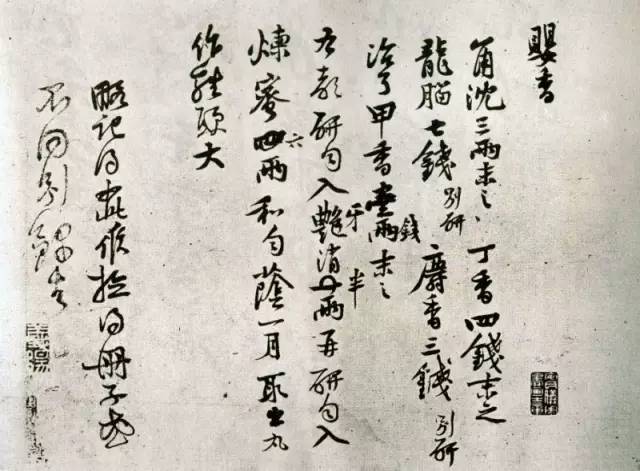 嬰香
角沈三兩末之丁香四錢末之
龍腦七錢別研麝香三錢別研
治了甲香壹兩錢末之
右都研勻入艷消牙半兩再研勻入
煉蜜四六兩和勻蔭一月取出丸
作雞頭大
略記得此候檢得冊子或
不同別錄去